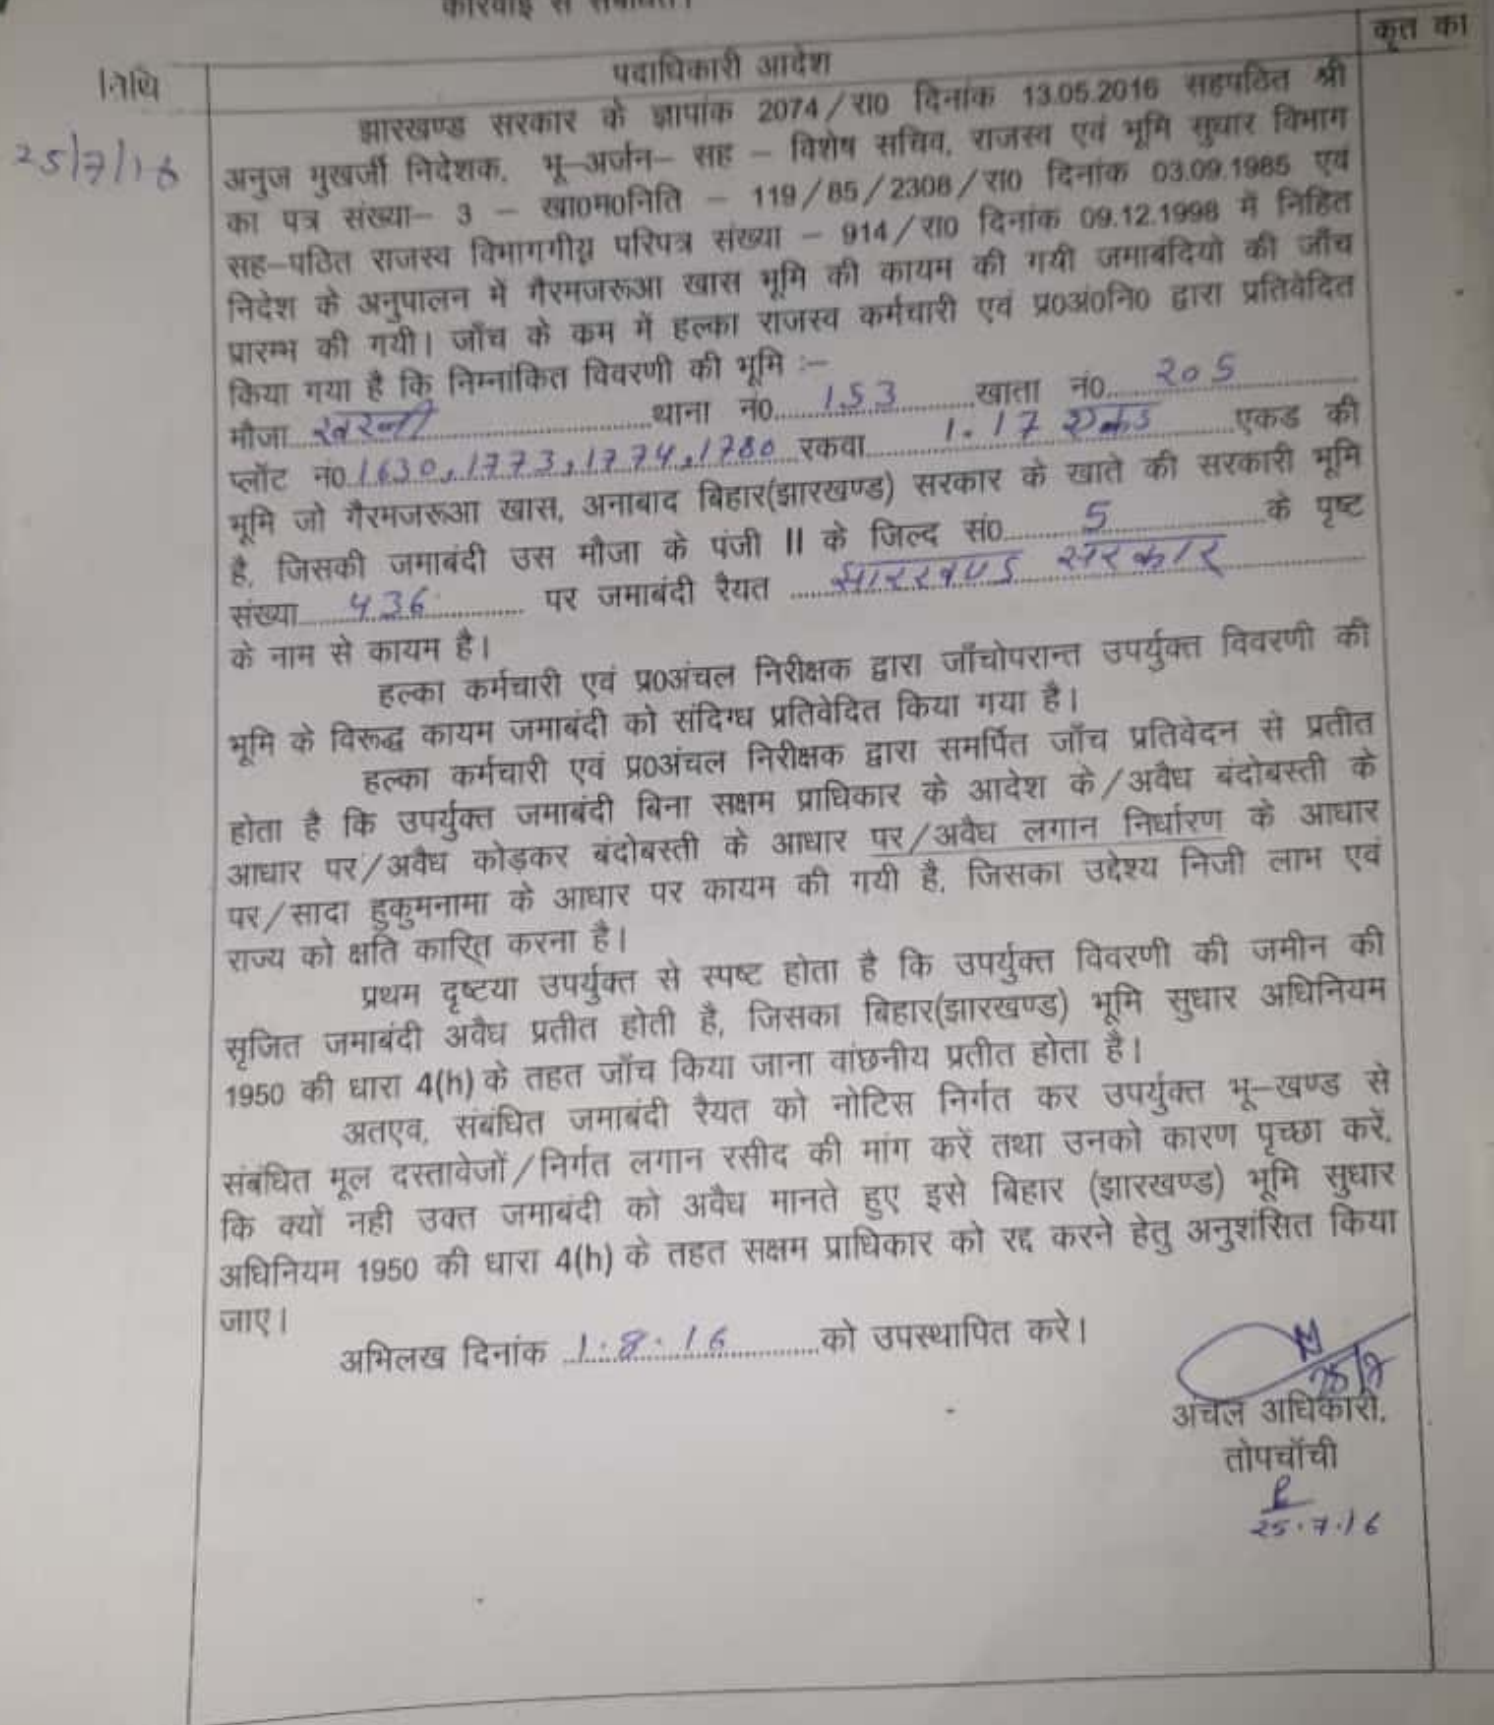 कारवाई से संबंधित।
कृत का
तिथि
पदाधिकारी आदेश
25/7/16
झारखण्ड सरकार के ज्ञापांक 2074/रा0 दिनांक 13.05.2016 सहपठित श्री
अनुज मुखर्जी निदेशक, भू–अर्जन– सह – विशेष सचिव, राजस्व एवं भूमि सुधार विभाग
का पत्र संख्या– 3 – खा0म0निति – 119/85/2308/रा0 दिनांक 03.09.1985 एवं
सह–पठित राजस्व विभागगीय परिपत्र संख्या – 914/रा0 दिनांक 09.12.1998 में निहित
निदेश के अनुपालन में गैरमजरूआ खास भूमि की कायम की गयी जमाबंदियो की जाँच
प्रारम्भ की गयी। जाँच के कम में हल्का राजस्व कर्मचारी एवं प्र0अं0नि0 द्वारा प्रतिवेदित
किया गया है कि निम्नांकित विवरणी की भूमि :–
मौजा खरनी थाना नं0 153 खाता नं0 205
प्लॉट नं0 1630, 1773, 1774, 1780 रकवा 1.17 एकड एकड की
भूमि जो गैरमजरूआ खास, अनाबाद बिहार(झारखण्ड) सरकार के खाते की सरकारी भूमि
है, जिसकी जमाबंदी उस मौजा के पंजी II के जिल्द सं0 5 के पृष्ट
संख्या 436 पर जमाबंदी रैयत झारखण्ड सरकार
के नाम से कायम है।
हल्का कर्मचारी एवं प्र0अंचल निरीक्षक द्वारा जाँचोपरान्त उपर्युक्त विवरणी की
भूमि के विरूद्ध कायम जमाबंदी को संदिग्ध प्रतिवेदित किया गया है।
हल्का कर्मचारी एवं प्र0अंचल निरीक्षक द्वारा समर्पित जाँच प्रतिवेदन से प्रतीत
होता है कि उपर्युक्त जमाबंदी बिना सक्षम प्राधिकार के आदेश के/अवैध बंदोबस्ती के
आधार पर/अवैध कोड़कर बंदोबस्ती के आधार पर/अवैध लगान निर्धारण के आधार
पर/सादा हुकुमनामा के आधार पर कायम की गयी है, जिसका उद्देश्य निजी लाभ एवं
राज्य को क्षति कारित् करना है।
प्रथम दृष्टया उपर्युक्त से स्पष्ट होता है कि उपर्युक्त विवरणी की जमीन की
सृजित जमाबंदी अवैध प्रतीत होती है, जिसका बिहार(झारखण्ड) भूमि सुधार अधिनियम
1950 की धारा 4(h) के तहत जाँच किया जाना वांछनीय प्रतीत होता है।
अतएव, संबंधित जमाबंदी रैयत को नोटिस निर्गत कर उपर्युक्त भू–खण्ड से
संबंधित मूल दस्तावेजों/निर्गत लगान रसीद की मांग करें तथा उनको कारण पृच्छा करें,
कि क्यों नही उक्त जमाबंदी को अवैध मानते हुए इसे बिहार (झारखण्ड) भूमि सुधार
अधिनियम 1950 की धारा 4(h) के तहत सक्षम प्राधिकार को रद्द करने हेतु अनुशंसित किया
जाए।
अभिलख दिनांक 1.8.16 को उपस्थापित करे।
अंचल अधिकारी,
तोपचाँची
25.7.16